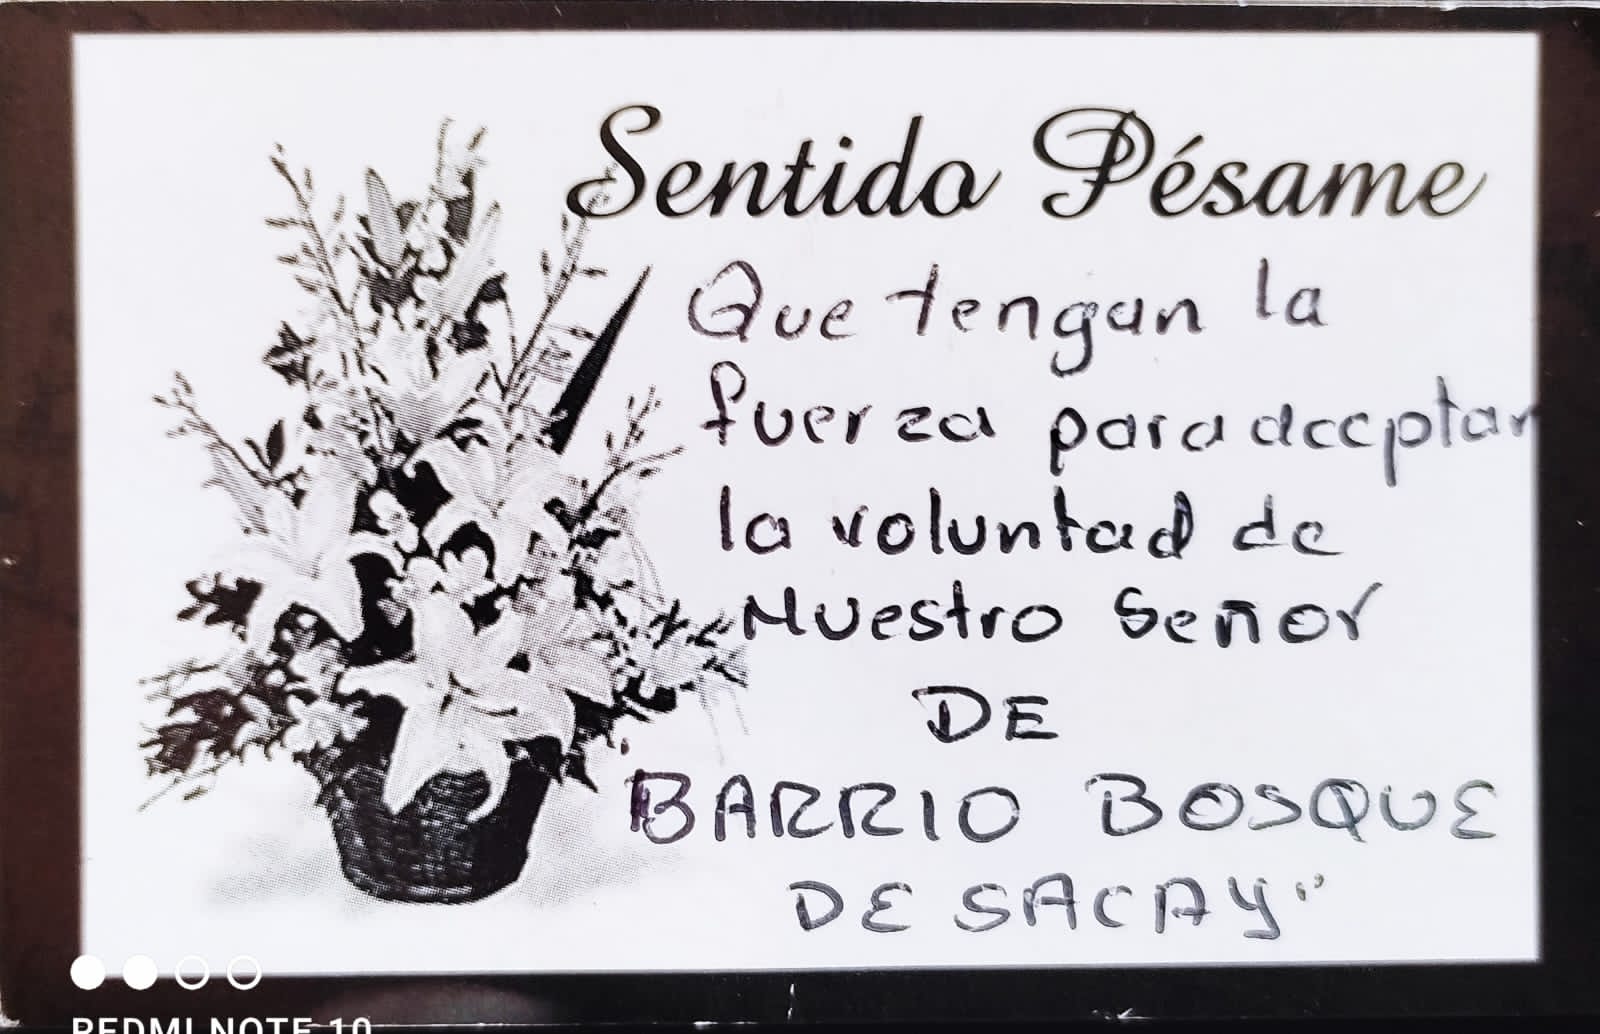 Sentido Pésame
Que tengan la
fuerza para aceptar
la voluntad de
Nuestro Señor
DE
"BARRIO BOSQUE
DE SACAY"
REDMI NOTE 10